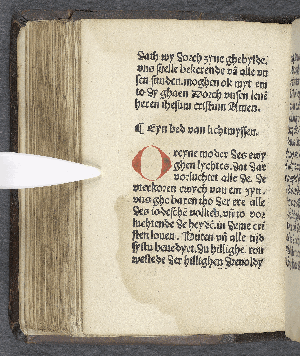 dath wy dorch zyne ghebyde.
vns snelle bekerende vã alle vn
sen sunden. moghen ok myt em
to dy ghaen Dorch vnsen leuẽ
heren ihesum cristum Amen.
¶ Eyn bed van lichtmyssen.
O reyne moder des ewy
ghen lychtes. dat dar
vorluchtet alle de. de
vterkoren ewych van em zyn.
vns ghebaren tho der ere alle
des iodeschẽ volkes. vñ to vor
luchtende de heydẽ. in deme cri
sten louen. Muten vñ alle tijd
systu benedyet. Du hillighe. ton
wesede der hillighen Symeoldy